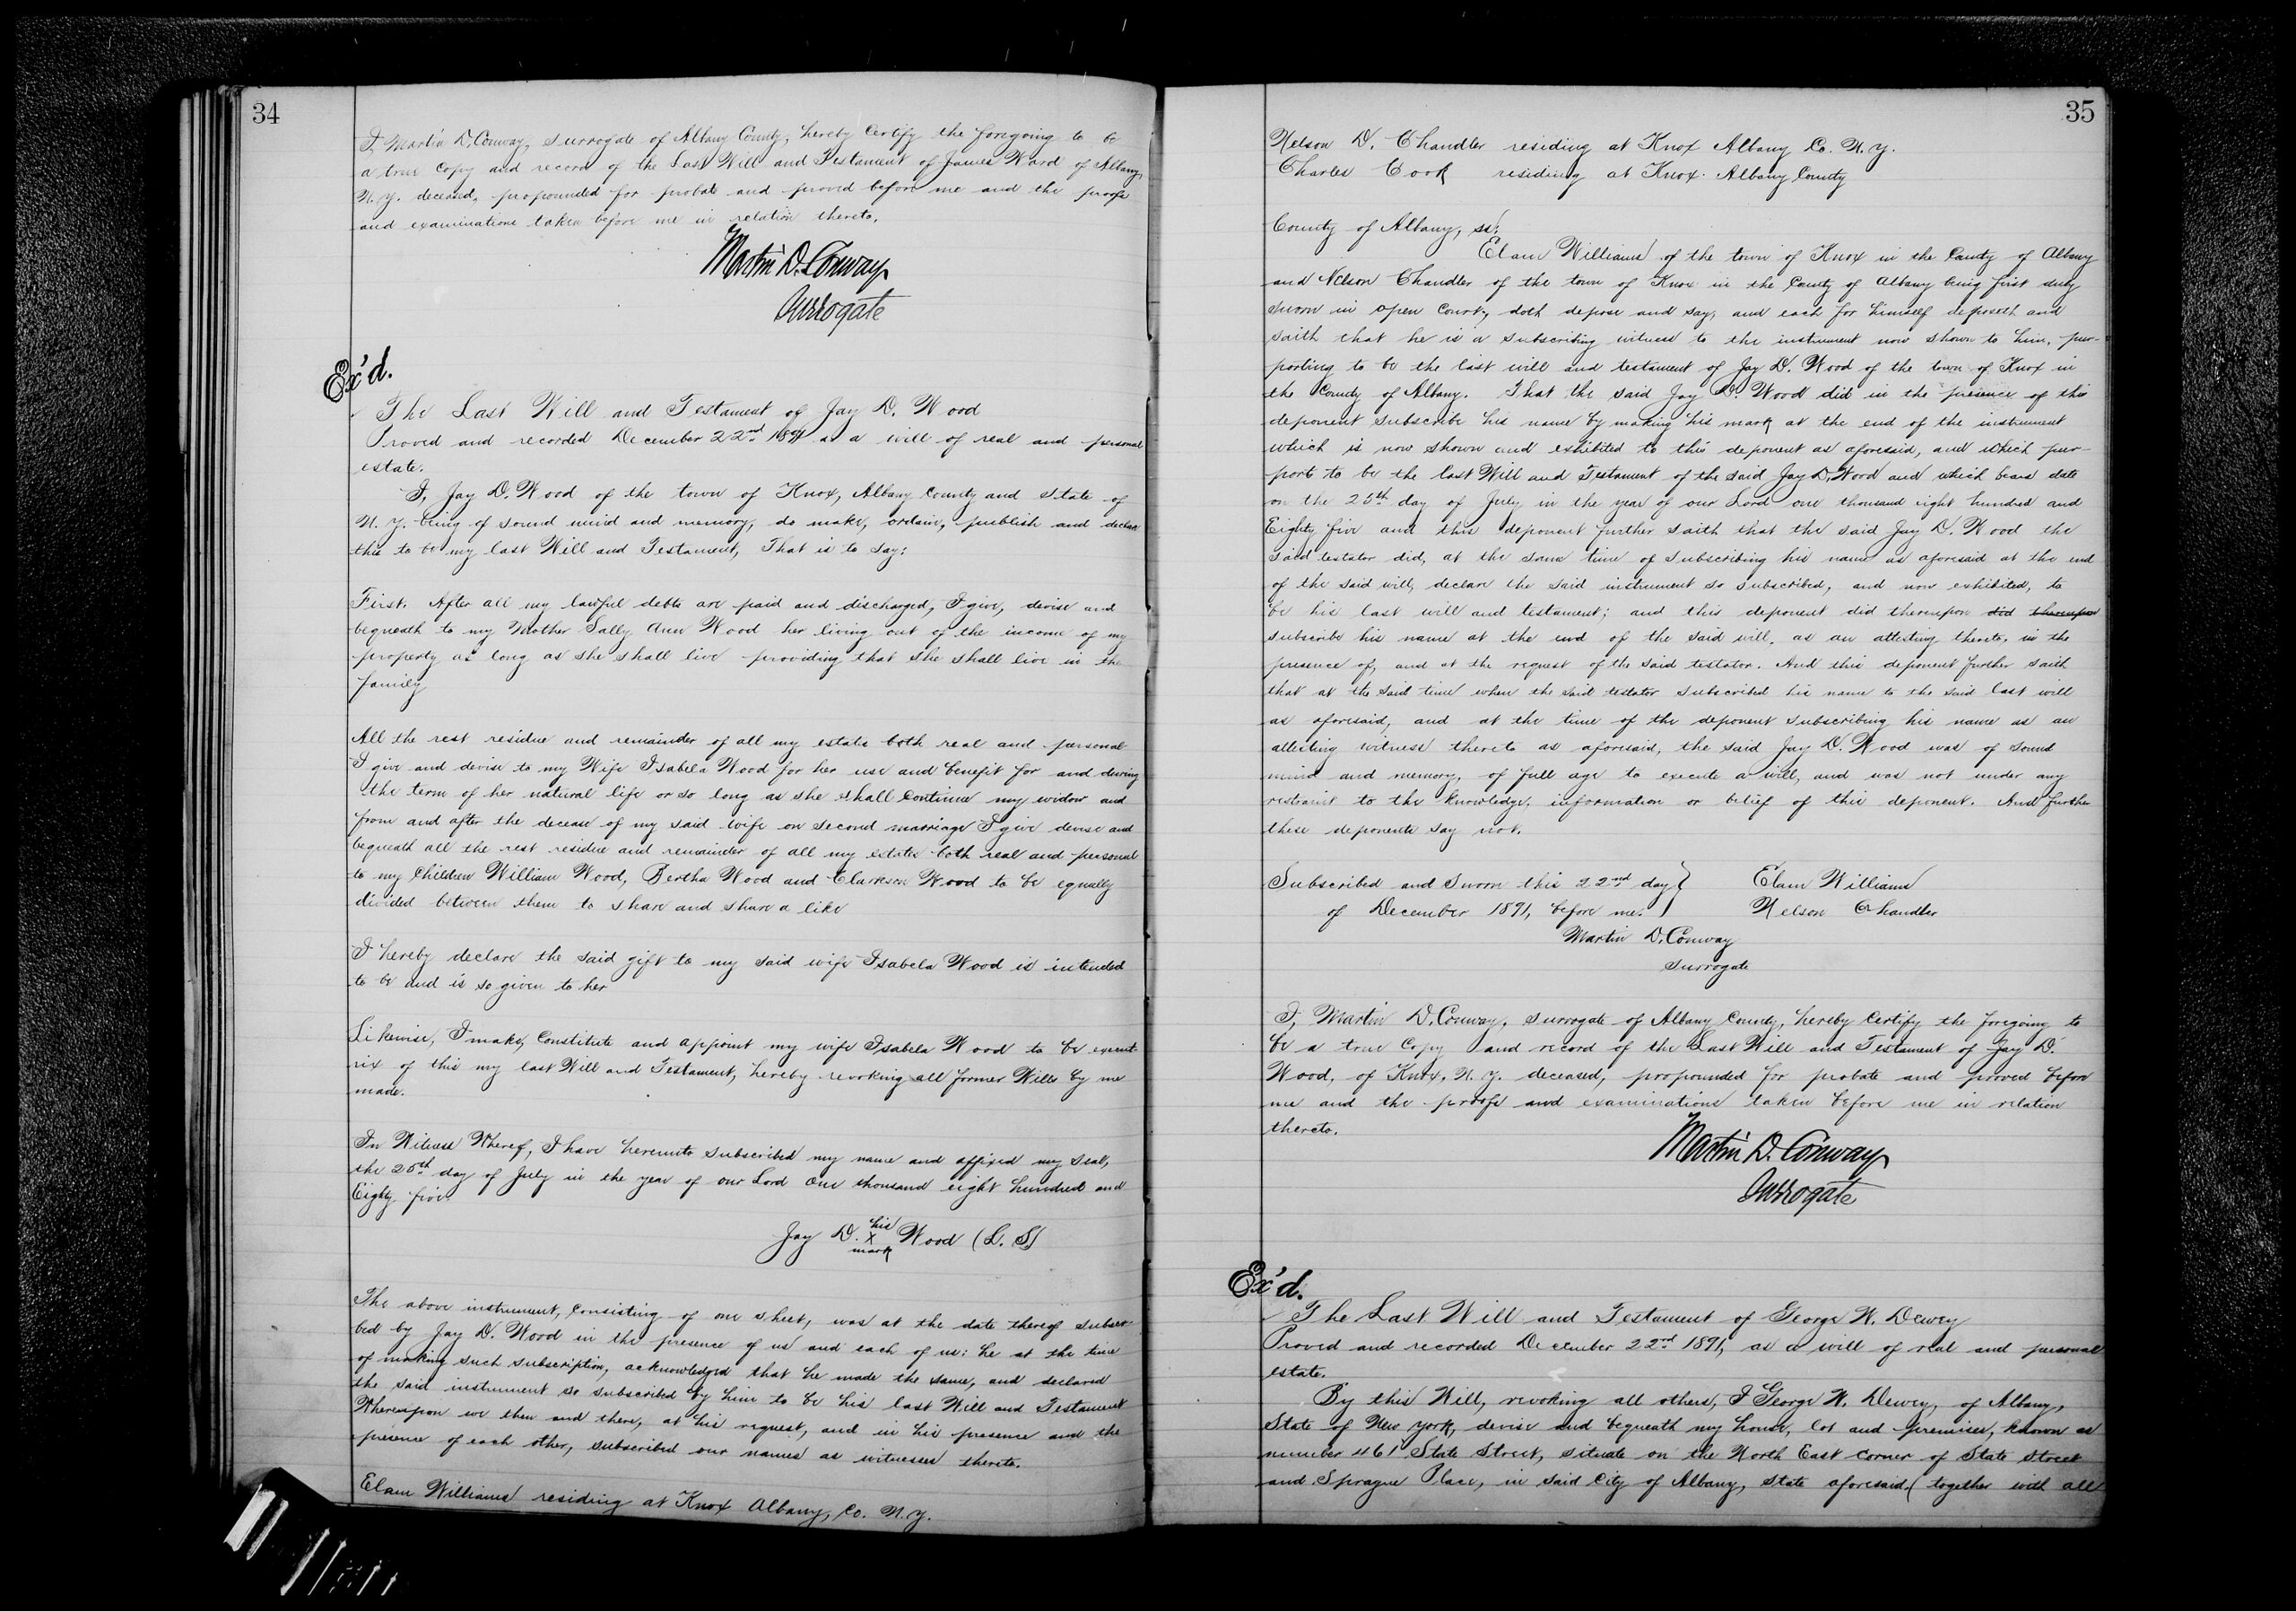 34
I, Martin D. Conway, Surrogate of Albany County, hereby Certify the foregoing to be
a true Copy and record of the Last Will and Testament of James Ward of Albany,
N. Y. deceased, propounded for probate and proved before me and the proofs
and examinations taken before me in relation thereto.
Martin D. Conway
Surrogate
Ex'd.
The Last Will and Testament of Jay D. Wood
Proved and recorded December 22nd 1891 as a will of real and personal
estate.
I, Jay D. Wood of the town of Knox, Albany County and State of
N. Y. being of sound mind and memory, do make, ordain, publish and declare
this to be my last Will and Testament, That is to say:
First. After all my lawful debts are paid and discharged, I give, devise and
bequeath to my Mother Sally Ann Wood her living out of the income of my
property as long as she shall live providing that she shall live in the
family
All the rest residue and remainder of all my estate both real and personal
I give and devise to my Wife Isabela Wood for her use and benefit for and during
the term of her natural life or so long as she shall Continue my widow and
from and after the decease of my said wife or second marriage I give devise and
bequeath all the rest residue and remainder of all my estate both real and personal
to my Children William Wood, Bertha Wood and Clarkson Wood to be equally
divided between them to share and share a like
I hereby declare the said gift to my said wife Isabela Wood is intended
to be and is so given to her
Likewise, I make, Constitute and appoint my wife Isabela Wood to be execut-
rix of this my last Will and Testament, hereby revoking all former Wills by me
made.
In Witness Whereof, I have hereunto subscribed my name and affixed my seal,
the 25th day of July in the year of our Lord One thousand eight hundred and
Eighty five.
his
Jay D. X Wood (L. S)
mark
The above instrument, Consisting of one sheet, was at the date thereof subscri-
bed by Jay D. Wood in the presence of us and each of us: he at the time
of making such subscription, acknowledged that he made the same, and declared
the said instrument so subscribed by him to be his last Will and Testament
Whereupon we then and there, at his request, and in his presence and the
presence of each other, subscribed our names as witnesses thereto.
Elam Williams residing at Knox Albany, Co. N. Y.
35
Nelson D. Chandler residing at Knox Albany Co. N. Y.
Charles Cook residing at Knox. Albany County
County of Albany, ss:
Elam Williams of the town of Knox in the County of Albany
and Nelson Chandler of the town of Knox in the County of Albany being first duly
sworn in open Court, doth depose and say, and each for himself deposeth and
saith that he is a subscribing witness to the instrument now shown to him, pur-
porting to be the last will and testament of Jay D. Wood of the town of Knox in
the County of Albany. That the said Jay D. Wood did in the presence of this
deponent subscribe his name by making his mark at the end of the instrument
which is now shown and exhibited to this deponent as aforesaid, and which pur-
ports to be the last Will and Testament of the said Jay D. Wood and which bears date
on the 25th day of July in the year of our Lord one thousand eight hundred and
Eighty five and this deponent further saith that the said Jay D. Wood the
said testator did, at the same time of subscribing his name as aforesaid at the end
of the said will, declare the said instrument so subscribed, and now exhibited, to
be his last will and testament; and this deponent did thereupon did thereupon
subscribe his name at the end of the said will, as an attesting thereto, in the
presence of, and at the request of the said testator. And this deponent further saith
that at the said time when the said testator subscribed his name to the said last will
as aforesaid, and at the time of the deponent subscribing his name as an
attesting witness thereto as aforesaid, the said Jay D. Wood was of sound
mind and memory, of full age to execute a will, and was not under any
restraint to the knowledge, information or belief of this deponent. And further
these deponents say not.
Subscribed and Sworn this 22nd day } Elam Williams
of December 1891, before me: Nelson Chandler
Martin D. Conway
Surrogate
I, Martin D. Conway, Surrogate of Albany County, hereby Certify the foregoing to
be a true Copy and record of the Last Will and Testament of Jay D.
Wood, of Knox, N. Y. deceased, propounded for probate and proved before
me and the proofs and examinations taken before me in relation
thereto.
Martin D. Conway
Surrogate
Ex'd.
The Last Will and Testament of George W. Dewey
Proved and recorded December 22nd 1891, as a will of real and personal
estate.
By this Will, revoking all others, I George W. Dewey, of Albany,
State of New York, devise and bequeath my house, lot and premises, known as
number 461 State Street, situate on the North East corner of State Street
and Sprague Place, in said City of Albany, State aforesaid, (together with all